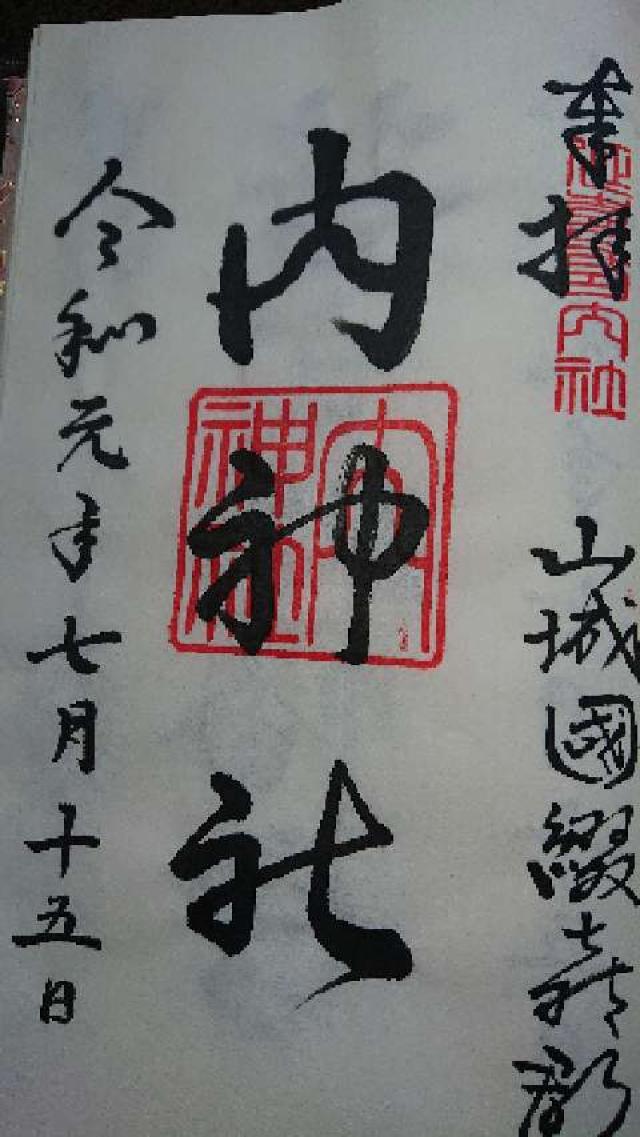 奉拝 山城國綴喜郡
延喜式内社
内神社
内神社
令和元年七月十五日